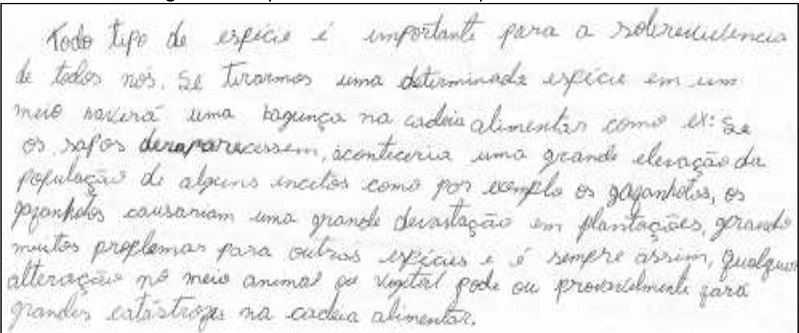 Todo tipo de espécie é importante para a sobrevivencia
de todos nós. Se tirarmos uma determinada espécie em um
meio haverá uma bagunça na cadeia alimentar como ex: Se
os sapos desaparecessem, aconteceria uma grande elevação da
população de alguns incetos como por exemplo os gafanhotos, os
gafanhotos causariam uma grande devastação em plantações, gerando
muitos problemas para outras espécies e é sempre assim, qualquer
alteração no meio animal ou vegetal pode ou provavelmente fará
grandes catástrofes na cadeia alimentar.